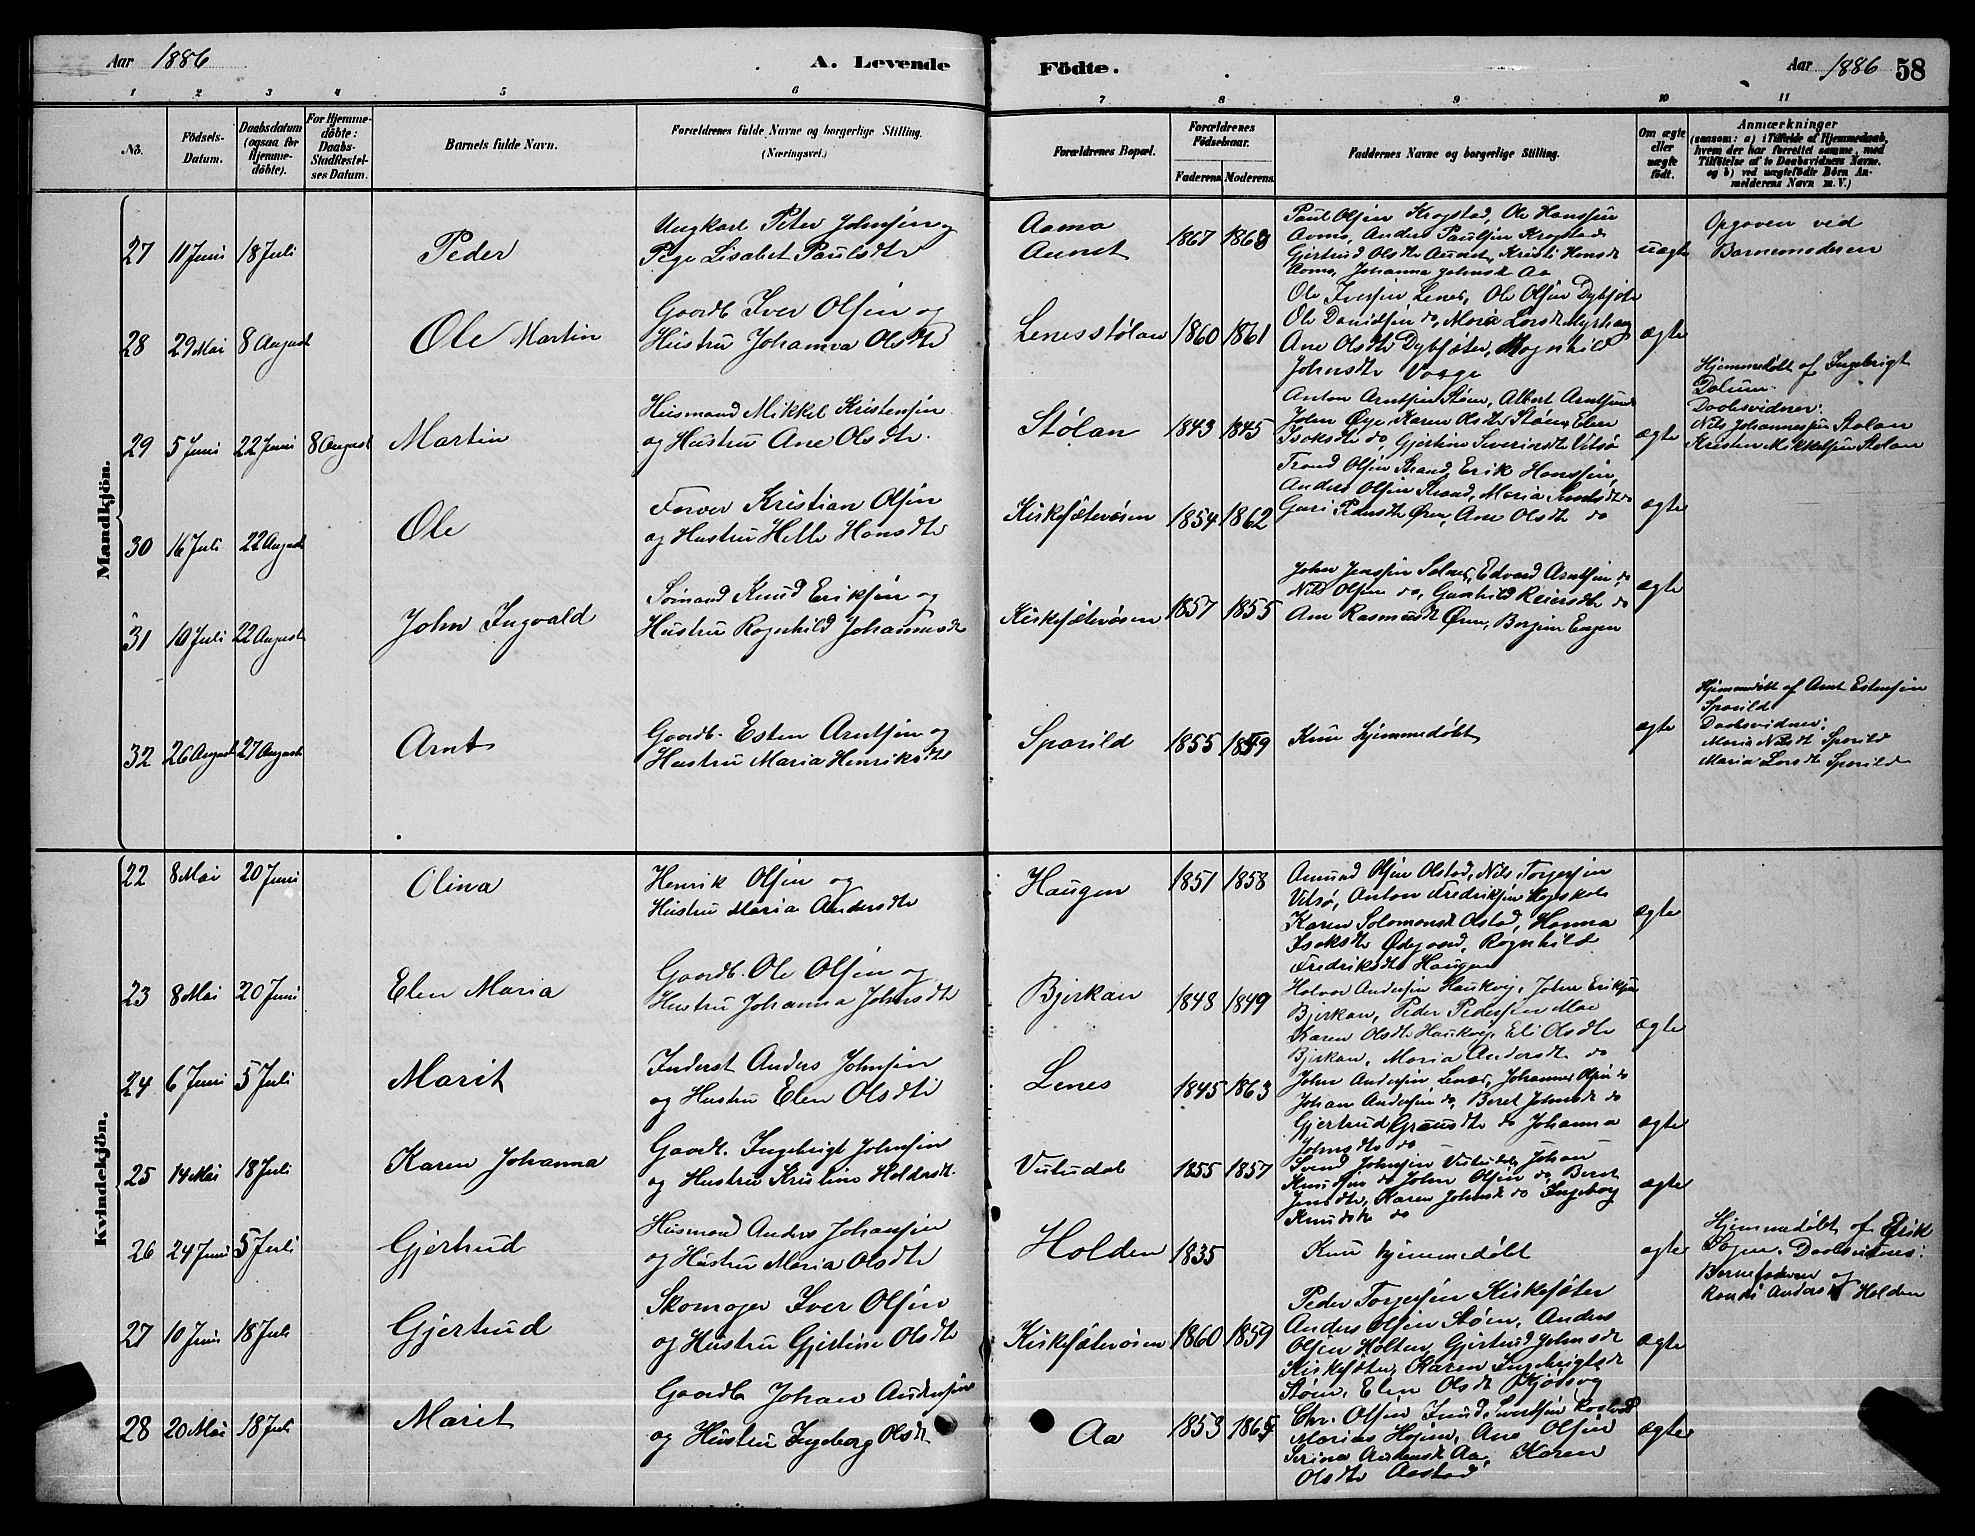 Aar 1886
A. Levende
Födte.
Aar 1886 58
1 2 3 4 5 6 7 8 9 10 11
No.
Födsels-
Datum.
Daabsdatum
(ogsaa for
Hjemme-
döbte).
For Hjemme-
döbte:
Daabs-
Stadfestel-
ses Datum.
Barnets fulde Navn.
Forældrenes fulde Navne og borgerlige Stilling.
(Næringsvei.)
Forældrenes Bopæl.
Forældrenes
Födselsaar.
Faderens Moderens
Faddernes Navne og borgerlige Stilling.
Om ægte
eller
uægte
födt.
Anmærkninger
(saasom: a) i Tilfælde af Hjemmedaab,
hvem der har forrettet samme, med
Tilföielse af to Daabsvidners Navne.
og b) ved uægtefödte Börn An-
melderens Navn m. V.)
Mandkjön.
27 11 Juni 18 Juli
Peder
Ungkarl Peter Johnsen og
Pige Lisabet Paulsdtr
Aamo
Aunet
1867
Paul Olsen Krogstad, Ole Hanssen
Aamo, Anders Paulsen Krogstad
Gjertrud Olsdtr Aunet, Kristi Hansdt
Aamo, Johanna Johnsdt Aa
uægte
Opgaven ved
Barnemoderen
28 29 Mai 8 August
Ole Martin
Gaardb Iver Olsen og
Hustru Johanna Olsdtr
Lenesstølan
1860 1861
Ole Iversen Lenes, Ole Olsen
Ole do, Larsdt
Ane Olsdtr
Johnsdtr Vaage
ægte
29 5 Juni 22 Juni 8 August
Martin
Husmand Mikkel Kristensen
og Hustru Ane Olsdtr.
Stølan
1843 1845
Anton Arntsen Støen, Albert Arntsen
John Øye, Karen Olsdtr Støen, Elen
Isaksdtr do, Gjertine Severinsdtr Vitsø
ægte
Hjemmedøbt af Ingebrigt
Dalum.
Daabsvidner:
Nils Johannessen Stølan
Kristen Mikkelsen Stølan
30 16 Juli 22 August
Ole
Farver Kristian Olsen
og Hustru Helle Hansdtr
Kirksæterøren
1854 1862
Trond Olsen Strand, Erik Hanssen,
Anders Olsen Strand, Maria do
Guri Pedersdtr Øren, Ane Olsdtr do
ægte
31 10 Juli 22 August
John Ingvald
Sømand Knud Eriksen og
Hustru Ragnhild Johannesdt
Kirksæterøren
1857 1855
John Jenssen Solnes, Edvard Arntsen do
Nils Olsen do, Gunhild Reiersdtr do
Ane Rasmusdt Øren, Engen
ægte
32 26 August 27 August
Arnt
Gaardb. Esten Arntsen og
Hustru Maria Henriksdtr
Sparild
1855
Kun hjemmedøbt
ægte
Hjemmedøbt af Arnt Estensen
Sparild
Daabsvidner:
Maria Nilsdt Sparild
Maria Larsdt Sparild
Kvindekjön.
22 8 Mai 20 Juni
Olina
Henrik Olsen og
Hustru Maria Andersdtr
Haugen
1851 1858
Amund Olsen Olstad, Nils Torgersen
Vitsø, Anton Fredriksen
Karen Solomonsdt Olstad, Hanna
Isaksdtr Ødegaard, Ragnhild
Fredriksdtr Haugen
ægte
23 8 Mai 20 Juni
Elen Maria
Gaardb. Ole Olsen og
Hustru Johanna Johnsdtr
Bjerkan
1848 1849
Halvor Andersen Haukvig, John Eriksen
Bjerkan, Peder Pedersen Moe
Karen Olsdtr Haukvig, Eli Olsdtr
Bjerkan, Maria Andersdtr do
ægte
24 6 Juni 5 Juli
Marit
Inderst Anders Johnsen
og Hustru Elen Olsdtr
Lenes
1845 1863
John Andersen Lenes, Johannes Olsen do
Johan Andersen do, Beret Johnsdt do
Gjertrud do Johanna
Johnsdtr do
ægte
25 14 Mai 18 Juli
Karen Johanna
Gaardb. Ingebrigt Johnsen
og Hustru Kristine
1855 1857
Svend Johnsen Johan
Knudsen do John Olsen do, Beret
Jensdtr, Karen Johnsdt do Ingeborg
Knudsdt do
ægte
26 24 Juni 5 Juli
Gjertrud
Husmand Anders Johansen
og Hustru Maria Olsdtr
Holden
1835
Kun hjemmedøbt
ægte
Hjemmedøbt af Erik
Daabsvidner:
Barnefaderen og
Andersdt Holden
27 10 Juni 18 Juli
Gjertrud
Skomager Iver Olsen
og Hustru Gjertine Olsdtr
Kirksæterøren
1860 1859
Peder Torgersen Kirksæter
Anders Olsen Støen, Anders
Olsen Holten, Gjertrud Johnsdt
Kirksæter, Karen Ingebrigtsdt
Støen, Elen Olsdt
ægte
28 20 Mai 18 Juli
Marit
Gaardb Johan Andersen
og Hustru Ingeborg Olsdt
Aa
1853
Chr. Olsen
Marius Ane Olsdt
Serina Andersdt Aa, Karen
Olsdtr Aastad
ægte